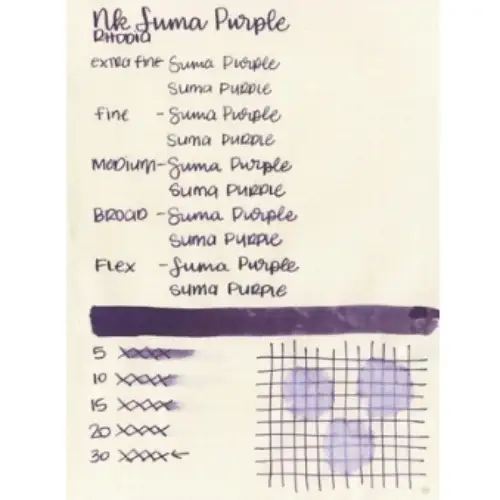 Nk Suma Purple
RHODIA
EXTRA FINE - Suma Purple
SUMA PURPLE
FINE - Suma Purple
SUMA PURPLE
MEDIUM - Suma Purple
SUMA PURPLE
BROAD - Suma Purple
SUMA PURPLE
FLEX - Suma Purple
SUMA PURPLE
5 XXXX
10 XXXX
15 XXXX
20 XXXX
30 XXXX ←